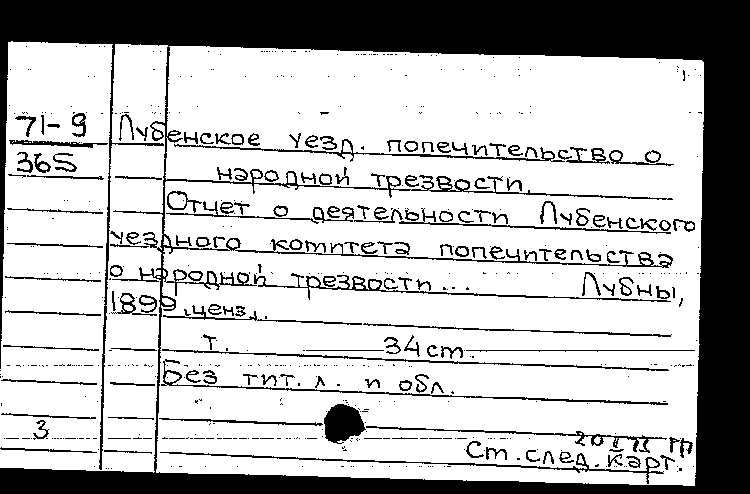 71-9 Лубенское уезд. попечительство о
365 народной трезвости.
Отчет о деятельности Лубенского
уездного комитета попечительства
о народной трезвости... Лубны,
1899, ценз..
т. 34 см.
Без тит. л. и обл.
3
Ст. след. карт.